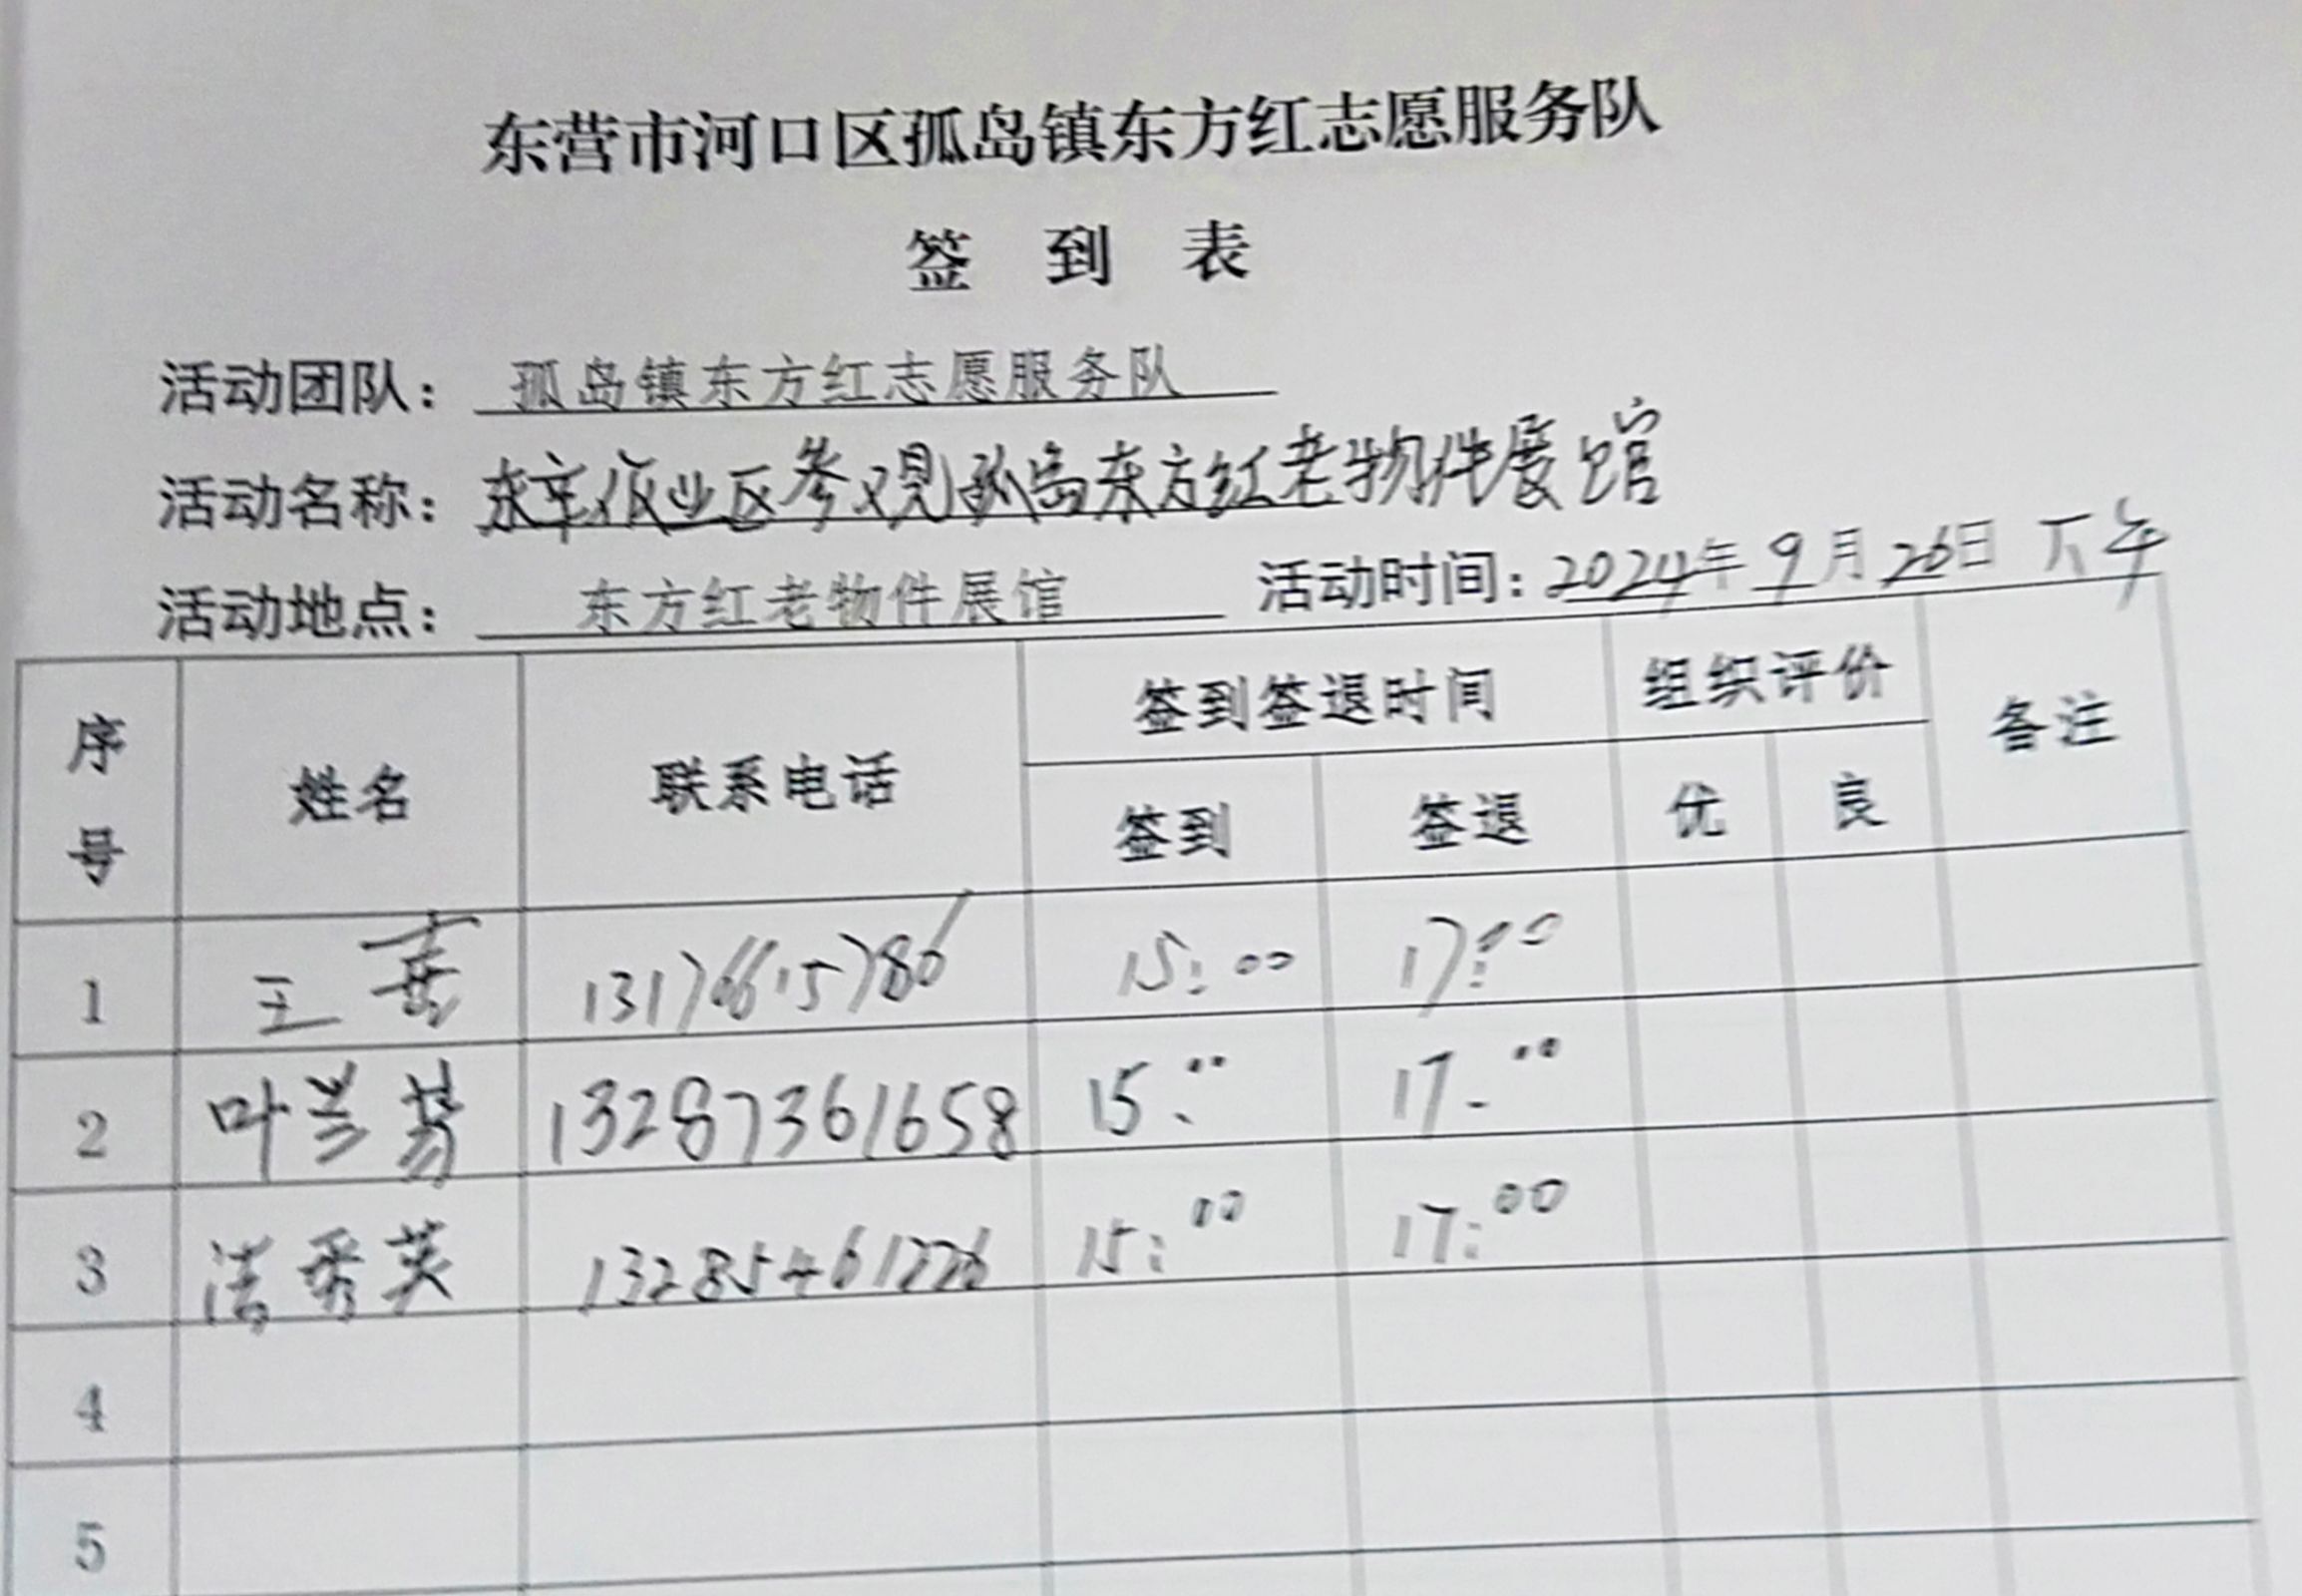 东营市河口区孤岛镇东方红志愿服务队
签 到 表
活动团队： 孤岛镇东方红志愿服务队
活动名称：东辛作业区参观孤岛东方红老物件展馆
活动地点： 东方红老物件展馆 活动时间：2024年9月26日 下午
序号 姓名 联系电话 签到签退时间 组织评价 备注
签到 签退 优 良
1 王 13176615786 15:00 17:00
2 叶兰芬 13287361658 15:00 17:00
3 秀英 13285461226 15:00 17:00
4
5